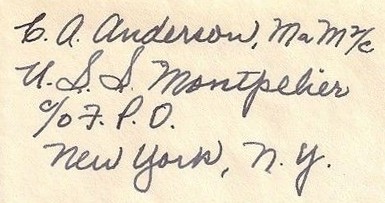 C. A. Anderson, MaM 2/c
U. S. S. Montpelier
c/o F. P. O.
New York, N. Y.